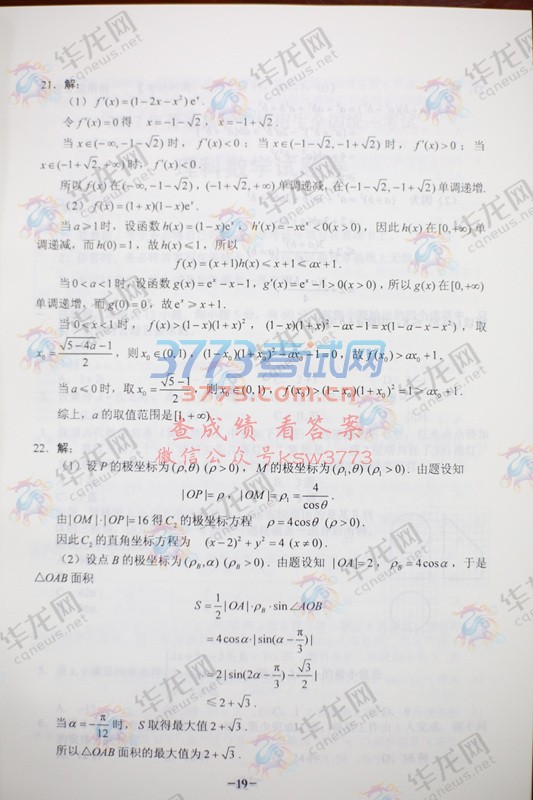 21．解：
（1） f′(x)=(1-2x-x²)eˣ．
令 f′(x)=0 得 x=-1-√2，x=-1+√2．
当 x∈(-∞,-1-√2) 时，f′(x)<0；当 x∈(-1-√2,-1+√2) 时，f′(x)>0；当
x∈(-1+√2,+∞) 时，f′(x)<0．
所以 f(x) 在 (-∞,-1-√2)，(-1+√2,+∞) 单调递减，在 (-1-√2,-1+√2) 单调递增．
（2） f(x)=(1+x)(1-x)eˣ．
当 a≥1 时，设函数 h(x)=(1-x)eˣ，h′(x)=-xeˣ<0(x>0)，因此 h(x) 在 [0,+∞) 单
调递减，而 h(0)=1，故 h(x)≤1，所以
f(x)=(x+1)h(x)≤x+1≤ax+1．
当 0<a<1 时，设函数 g(x)=eˣ-x-1，g′(x)=eˣ-1>0(x>0)，所以 g(x) 在 [0,+∞)
单调递增，而 g(0)=0，故 eˣ≥x+1．
当 0<x<1 时，f(x)>(1-x)(1+x)²，(1-x)(1+x)²-ax-1=x(1-a-x-x²)，取
x₀=(√(5-4a)-1)/2，则 x₀∈(0,1)，(1-x₀)(1+x₀)²-ax₀-1=0，故 f(x₀)>ax₀+1．
当 a≤0 时，取 x₀=(√5-1)/2 则 x₀∈(0,1)，f(x₀)>(1-x₀)(1+x₀)²=1>ax₀+1．
综上，a 的取值范围是 [1,+∞)．
3773考试网
查成绩 看答案
微信公众号ksw3773
22．解：
（1）设 P 的极坐标为 (ρ,θ) (ρ>0)，M 的极坐标为 (ρ₁,θ) (ρ₁>0)．由题设知
|OP|=ρ，|OM|=ρ₁=4/cosθ．
由 |OM|·|OP|=16 得 C₂ 的极坐标方程 ρ=4cosθ (ρ>0)．
因此 C₂ 的直角坐标方程为 (x-2)²+y²=4 (x≠0)．
（2）设点 B 的极坐标为 (ρ_B,α) (ρ_B>0)．由题设知 |OA|=2，ρ_B=4cosα，于是
△OAB 面积
S=1/2|OA|·ρ_B·sin∠AOB
=4cosα·|sin(α-π/3)|
=2|sin(2α-π/3)-√3/2|
≤2+√3．
当 α=-π/12 时，S 取得最大值 2+√3．
所以 △OAB 面积的最大值为 2+√3．
—19—
华龙网
cqnews.net